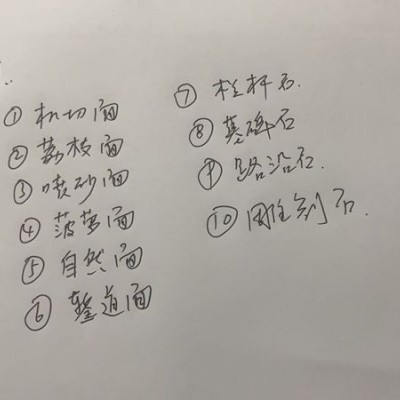 ①机切面
②荔枝面
③喷砂面
④菠萝面
⑤自然面
⑥錾道面
⑦栏杆石.
⑧墓碑石
⑨路沿石.
⑩雕刻石.